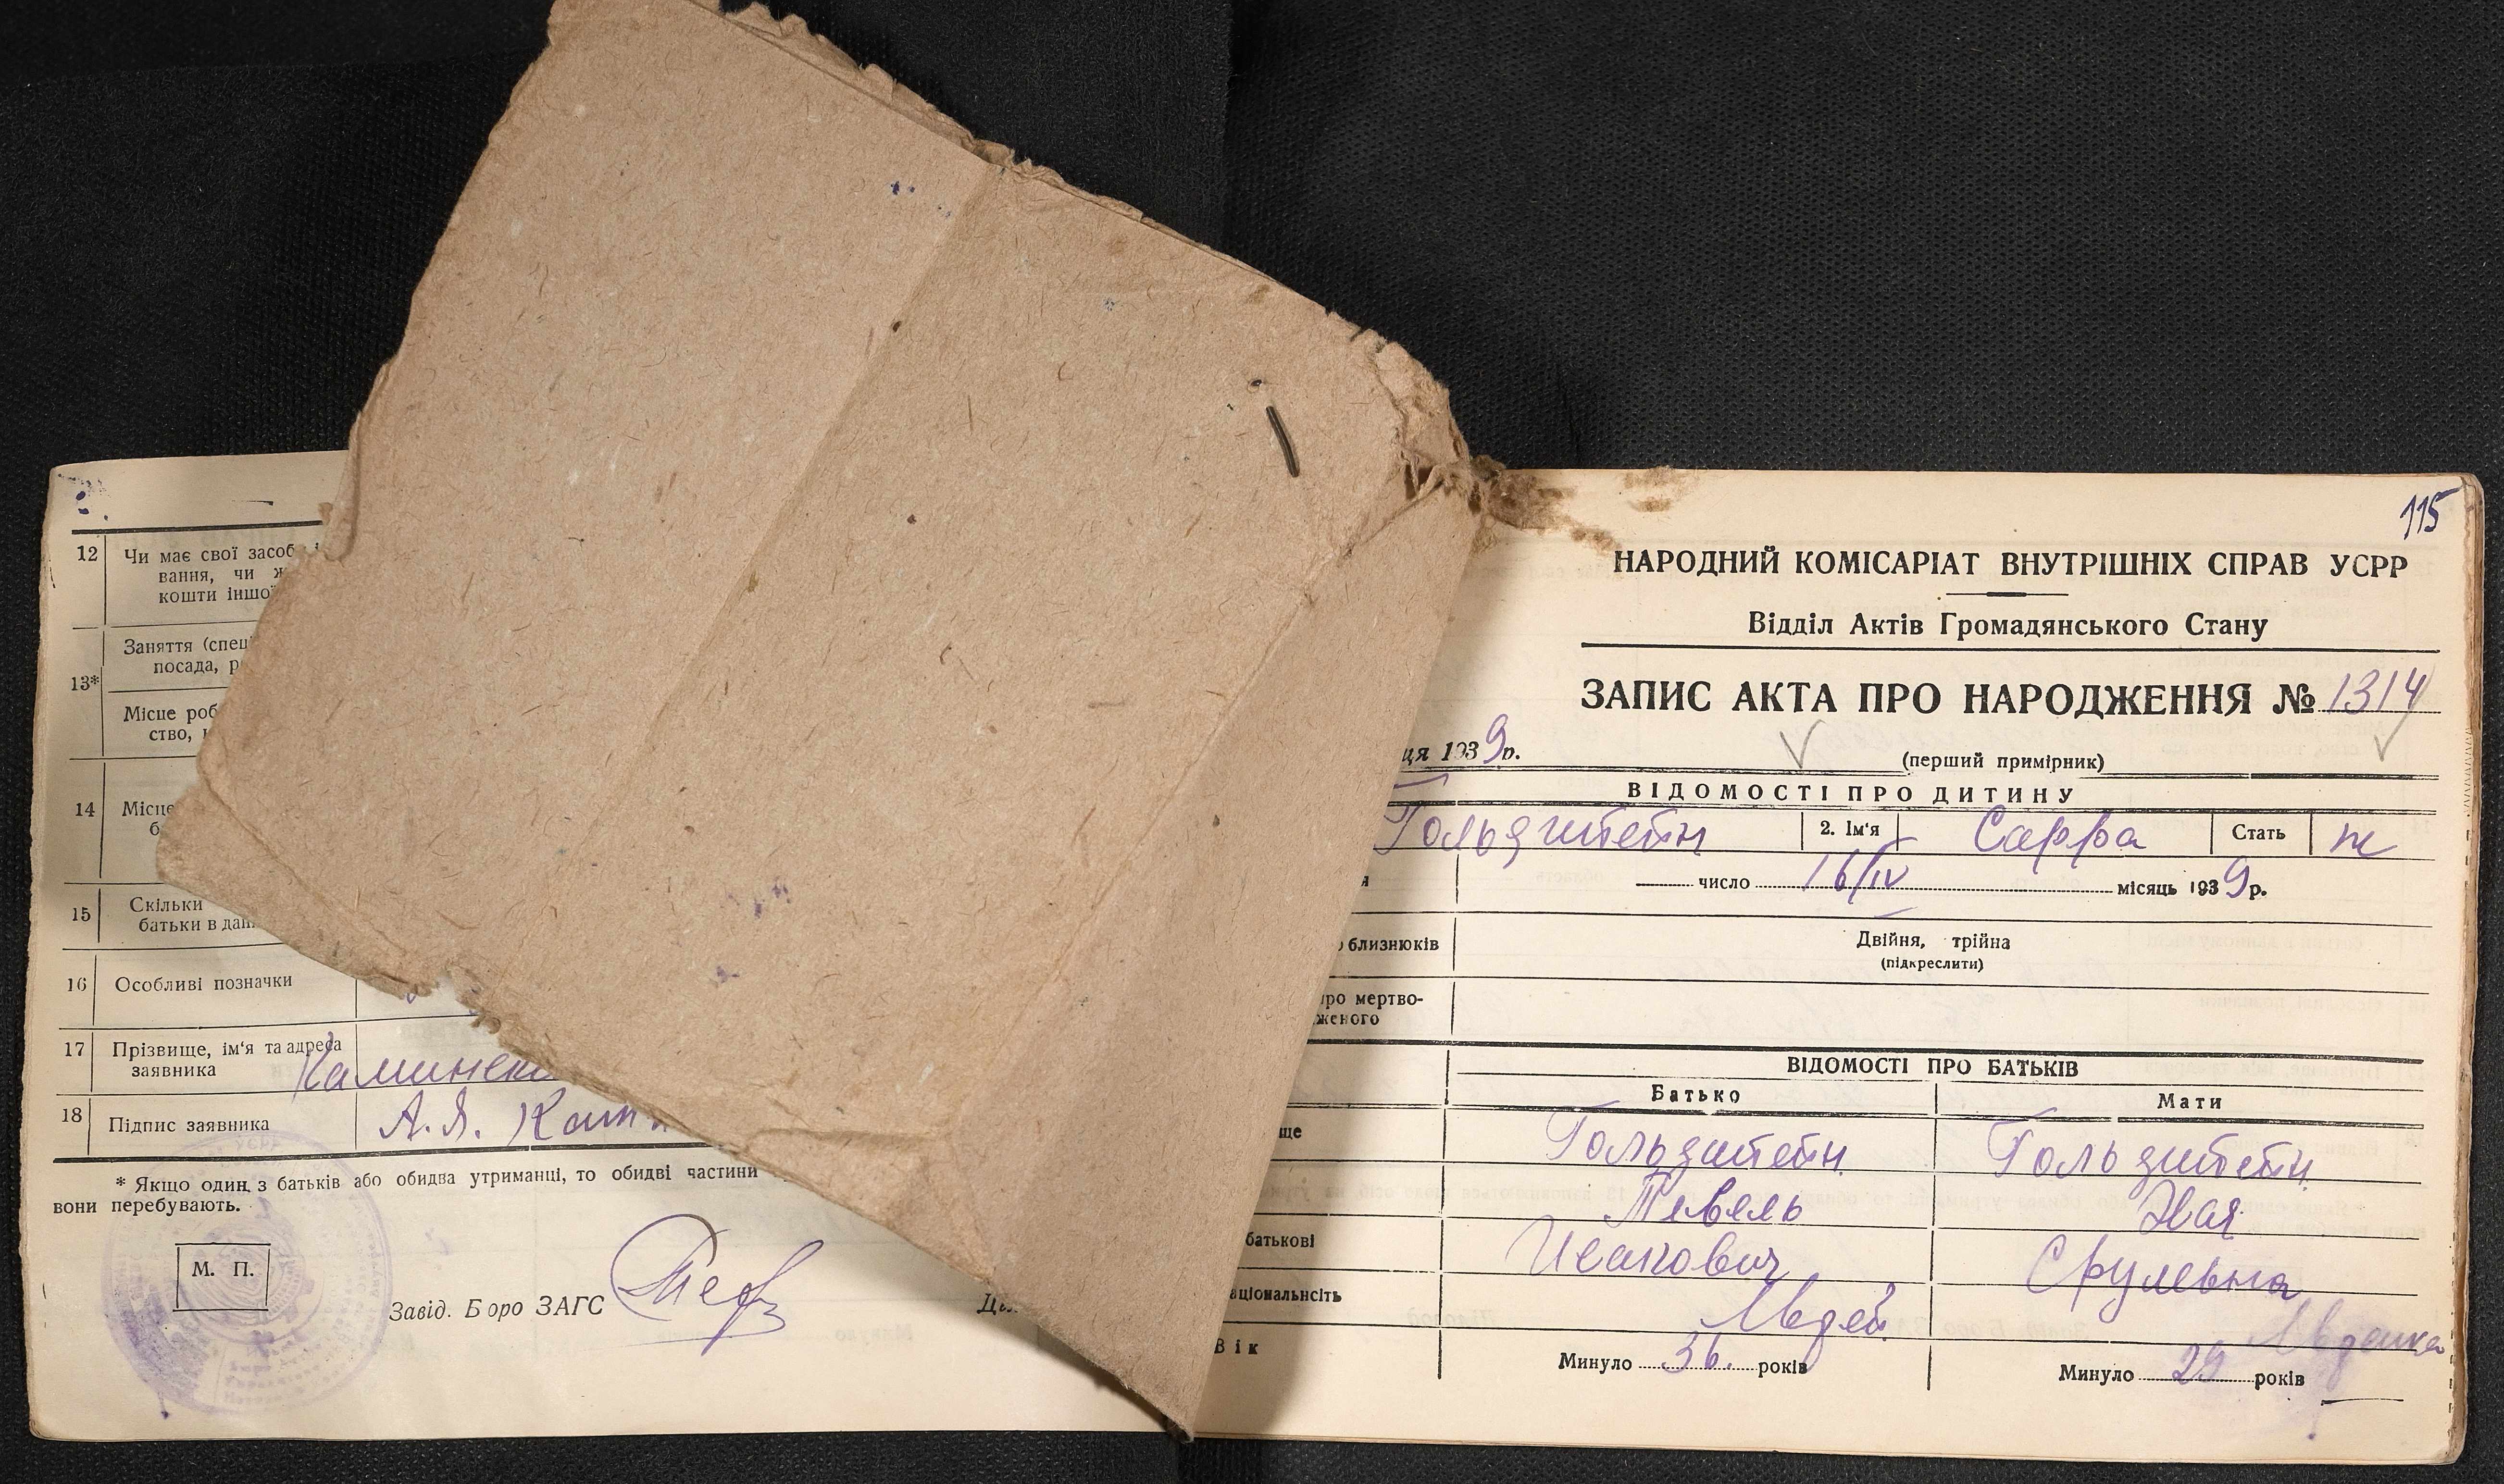 12 Чи має свої засоб
вання, чи ж
кошти іншої
Заняття (спец
посада, р
13*
Місце роб
ство,
14 Місце
б
15 Скільки
батьки в дан
16 Особливі позначки
17 Прізвище, ім'я та адреса
заявника
18 Підпис заявника А. Я.
* Якщо один з батьків або обидва утриманці, то обидві частини
вони перебувають.
М. П.
Завід. Бюро ЗАГС
115
НАРОДНИЙ КОМІСАРІАТ ВНУТРІШНІХ СПРАВ УСРР
Відділ Актів Громадянського Стану
ЗАПИС АКТА ПРО НАРОДЖЕННЯ № 1314
ця 1939 р.
(перший примірник)
ВІДОМОСТІ ПРО ДИТИНУ
Гольдштейн 2. Ім'я Сарра Стать ж
я число 16/IV місяць 1939 р.
о близнюків Двійня, трійна
(підкреслити)
про мертво-
женого
ВІДОМОСТІ ПРО БАТЬКІВ
Батько Мати
ще Гольдштейн Гольдштейн
Хая
батькові Исакович Срулевна
аціональність Еврей Еврейка
Вік Минуло 36. років Минуло 29 років